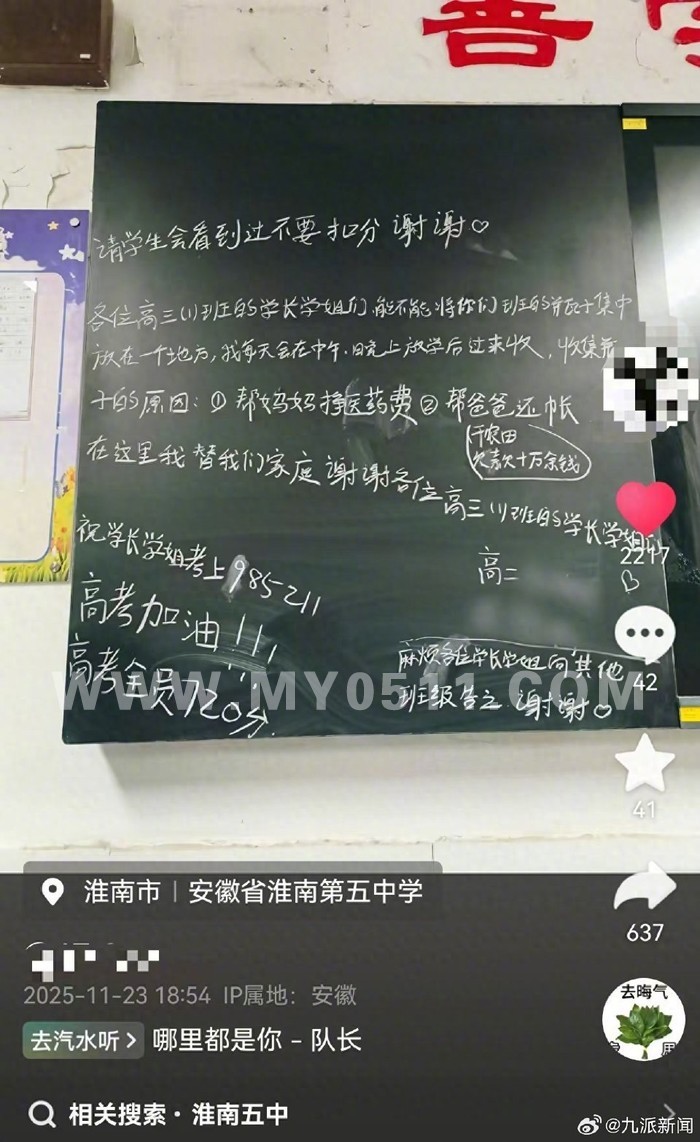 善
请学生会看到过不要扣分 谢谢♡
各位高三(1)班的学长学姐们,能不能将你们班的瓶子集中
放在一个地方,我每天会在中午、晚上放学后过来收,收集瓶
子的原因:① 帮妈妈挣医药费② 帮爸爸还帐
干农田
欠款十万余钱
在这里我替我们家庭谢谢各位高三(1)班的学长学姐们
高二
祝学长学姐考上985211
高考加油!!!
高考全员720分
麻烦各位学长学姐向其他
班级报告之 谢谢♡
WWW.MY0511.COM
2217
42
41
637
淮南市 | 安徽省淮南第五中学
2025-11-23 18:54 IP属地:安徽
去汽水听 > 哪里都是你 - 队长
去晦气
相关搜索 · 淮南五中
@九派新闻